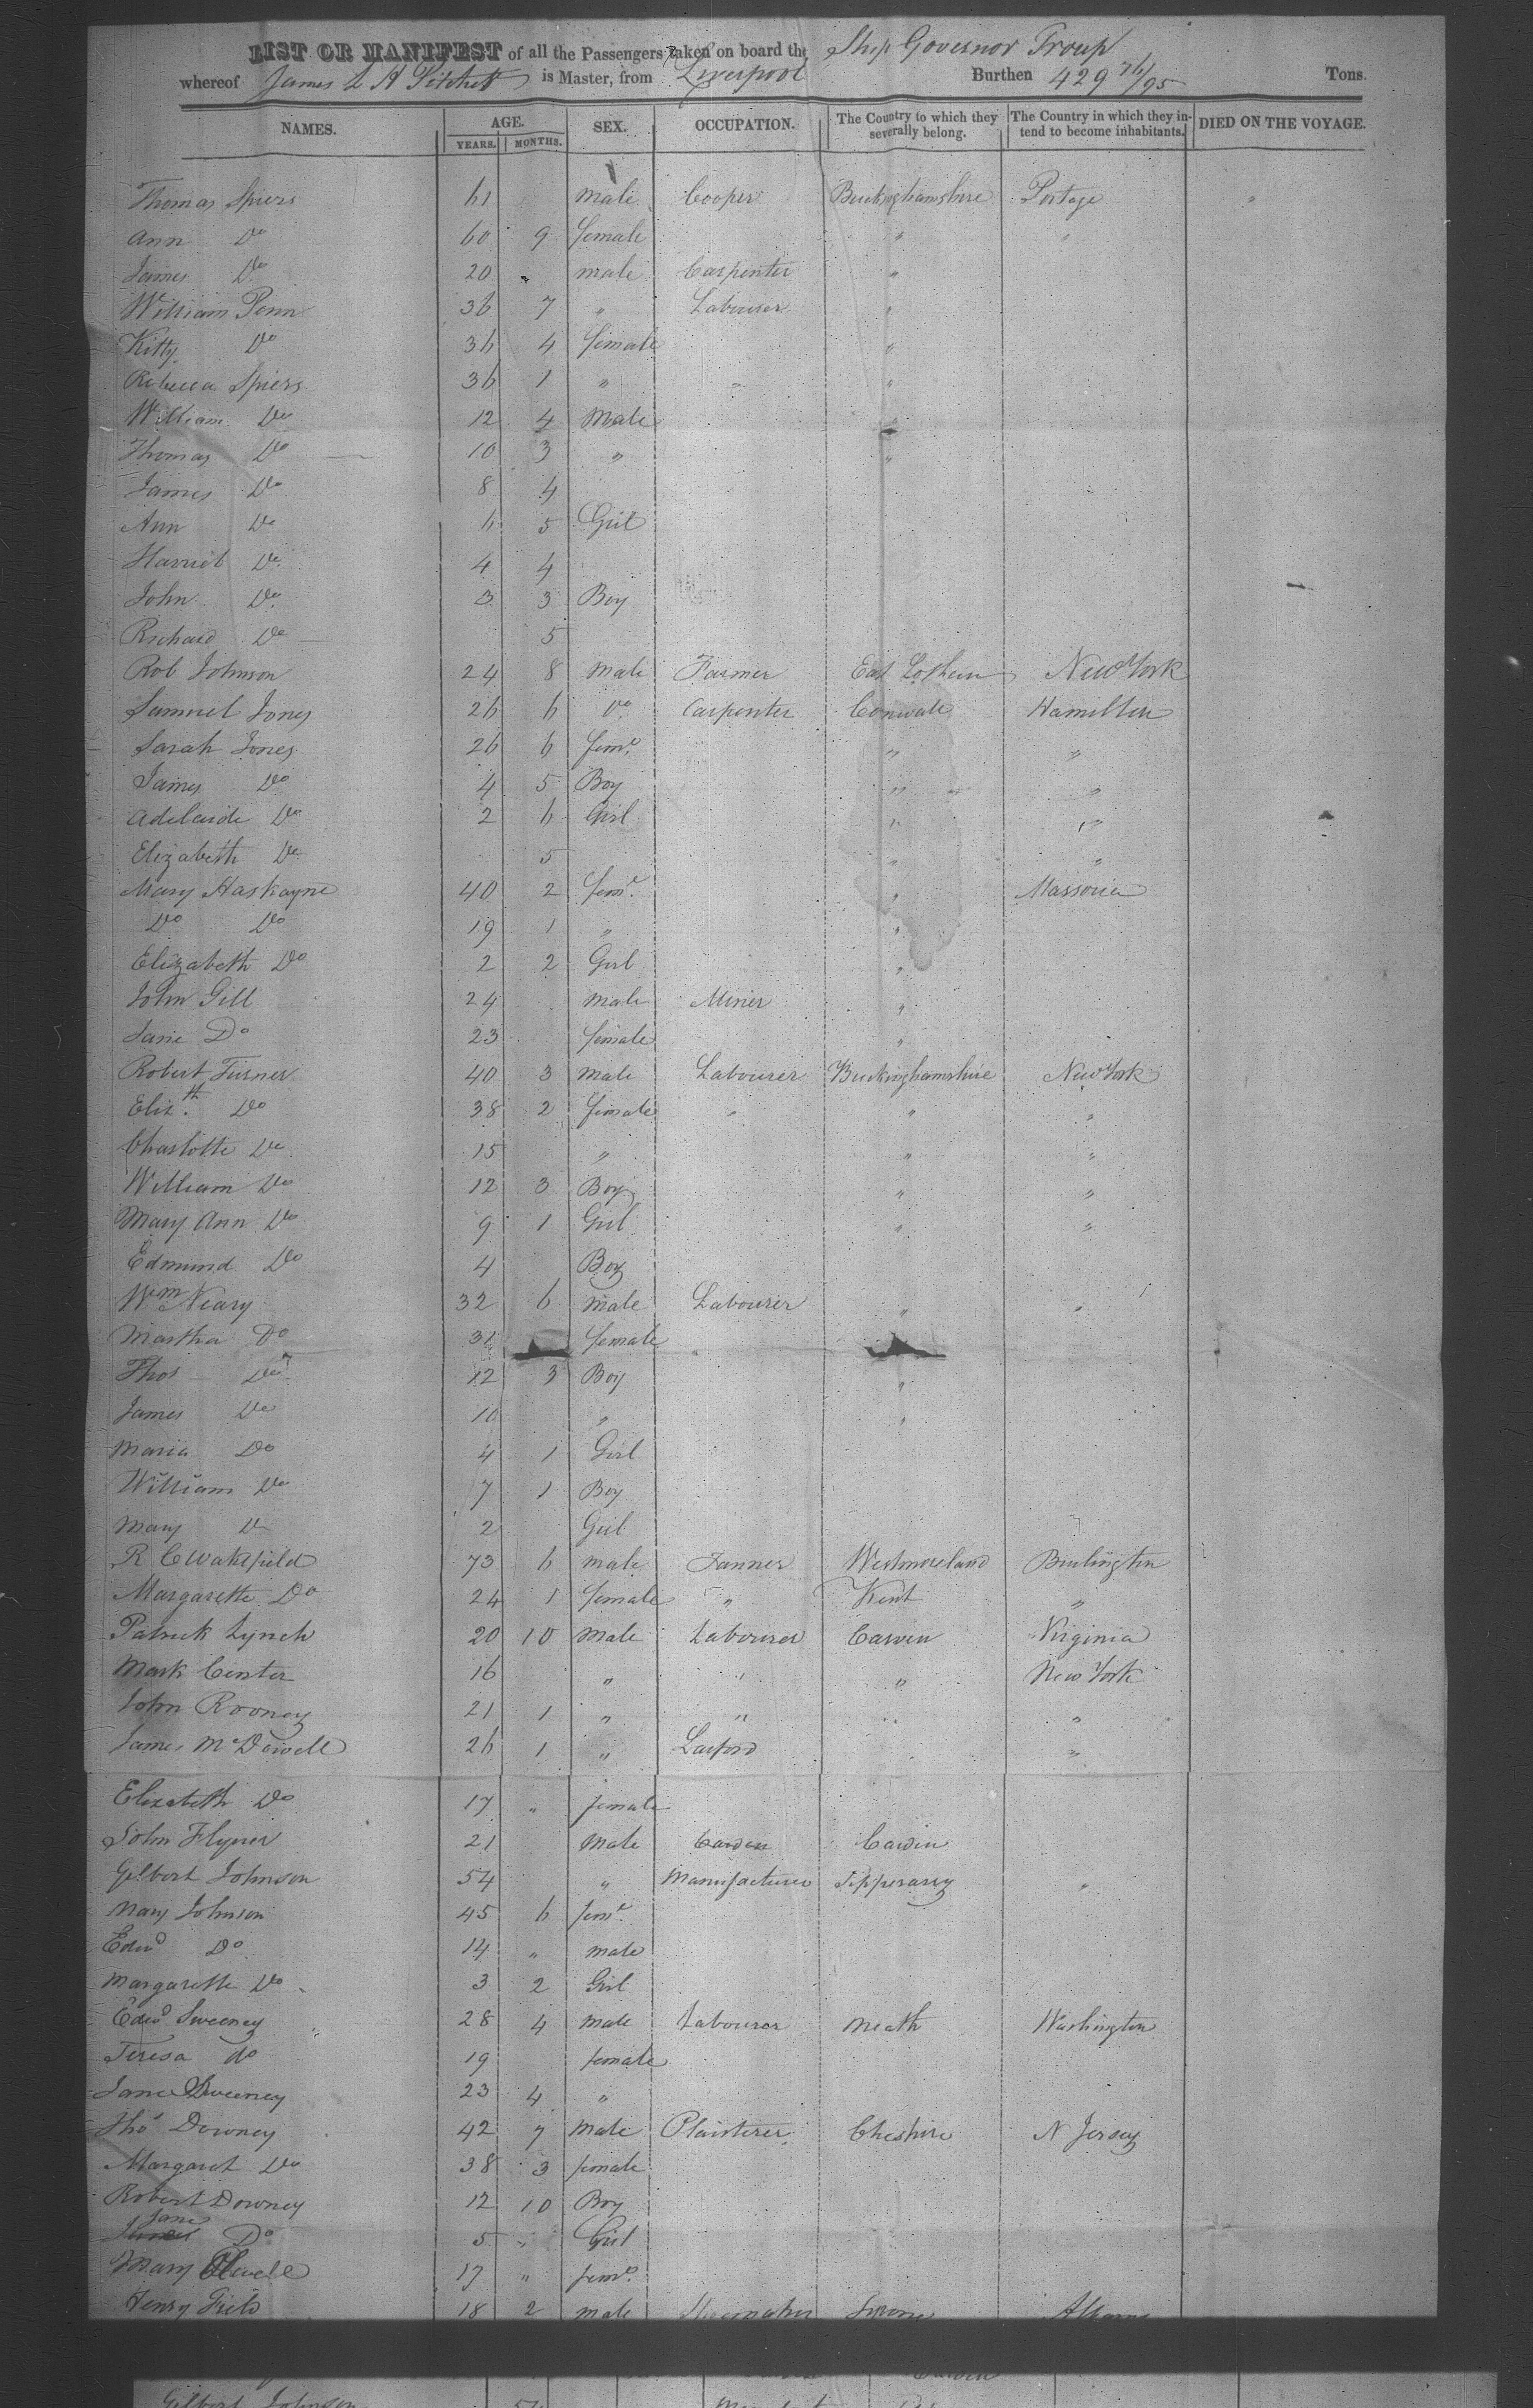 LIST OR MANIFEST of all the Passengers taken on board the Ship Governor Troup
whereof James L H is Master, from Liverpool Burthen 429 76/95 Tons.
NAMES. AGE. YEARS. MONTHS. SEX. OCCUPATION. The Country to which they severally belong. The Country in which they intend to become inhabitants. DIED ON THE VOYAGE.
Thomas Spiers 61 male Cooper Buckinghamshire Portage "
Ann Do 60 9 female " "
James Do 20 male Carpenter "
William Penn 36 7 " Labourer "
Kitty Do 36 4 female "
Rebecca Spiers 36 1 " " "
William Do 12 4 Male "
Thomas Do 10 3 " "
James Do 8 4
Ann Do 6 5 Girl
Harriet Do 4 4
John Do 3 3 Boy
Richard Do 5
Rob Johnson 24 8 male Farmer East New York
Samuel Jones 26 6 Do Carpenter Cornwall Hamilton
Sarah Jones 26 6 feme " "
James Do 4 5 Boy " "
Adelaide Do 2 6 Girl " "
Elizabeth Do 5 " "
Mary Haskayne 40 2 feme " Massoria
Do Do 19 1 " "
Elizabeth Do 2 2 Girl "
John Gill 24 male Miner "
Jane Do 23 female "
Robert Turner 40 3 male Labourer Buckinghamshire New York
Elizth Do 38 2 female " " "
Charlotte Do 15 " " "
William Do 12 3 Boy " "
Mary Ann Do 9 1 Girl " "
Edmund Do 4 Boy
Wm Neary 32 6 male Labourer " "
Martha Do 31 female
Thos Do 12 3 Boy "
James Do 10 " "
Maria Do 4 1 Girl
William Do 7 1 Boy
Mary Do 2 Girl
R C Wakefield 73 6 male Tanner Westmoreland Burlington
Margarette Do 24 1 female " Kent "
Patrick Lynch 20 10 Male Labourer Caven Virginia
Mark Center 16 " " " New York
John Rooney 21 1 " " " "
James McDowell 26 1 " "
Elizabeth Do 17 " female
John Flyner 21 Male Cavin
Gilbert Johnson 54 " Manufacturer Tipperary "
Mary Johnson 45 6 feme
Edwd Do 14 " male
Margarette Do 3 2 Girl
Edwd Sweeney 28 4 male Labourer Meath Washington
Teresa do 19 female
Jane Sweeney 23 4 "
Tho Downey 42 7 Male Plaisterer Cheshire N Jersey
Margaret Do 38 3 female
Robert Downey 12 10 Boy
Jane Do 5 " Girl
Mary 17 " feme
Henry Field 18 2 male Shoemaker
Gilbert Johnson 54